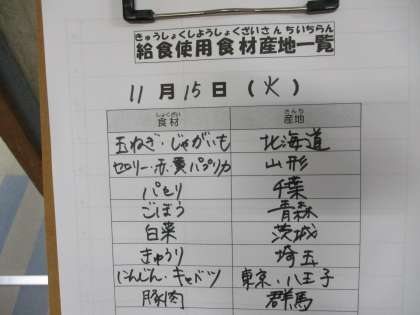 きゅうしょくしようしょくざいさんちいちらん
給食使用食材産地一覧
11月15日(火)
しょくざい さんち
食材 産地
玉ねぎ・じゃがいも 北海道
セロリー・赤・黄パプリカ 山形
パセリ 千葉
ごぼう 青森
白菜 茨城
きゅうり 埼玉
にんじん・キャベツ 東京・八王子
豚肉 群馬